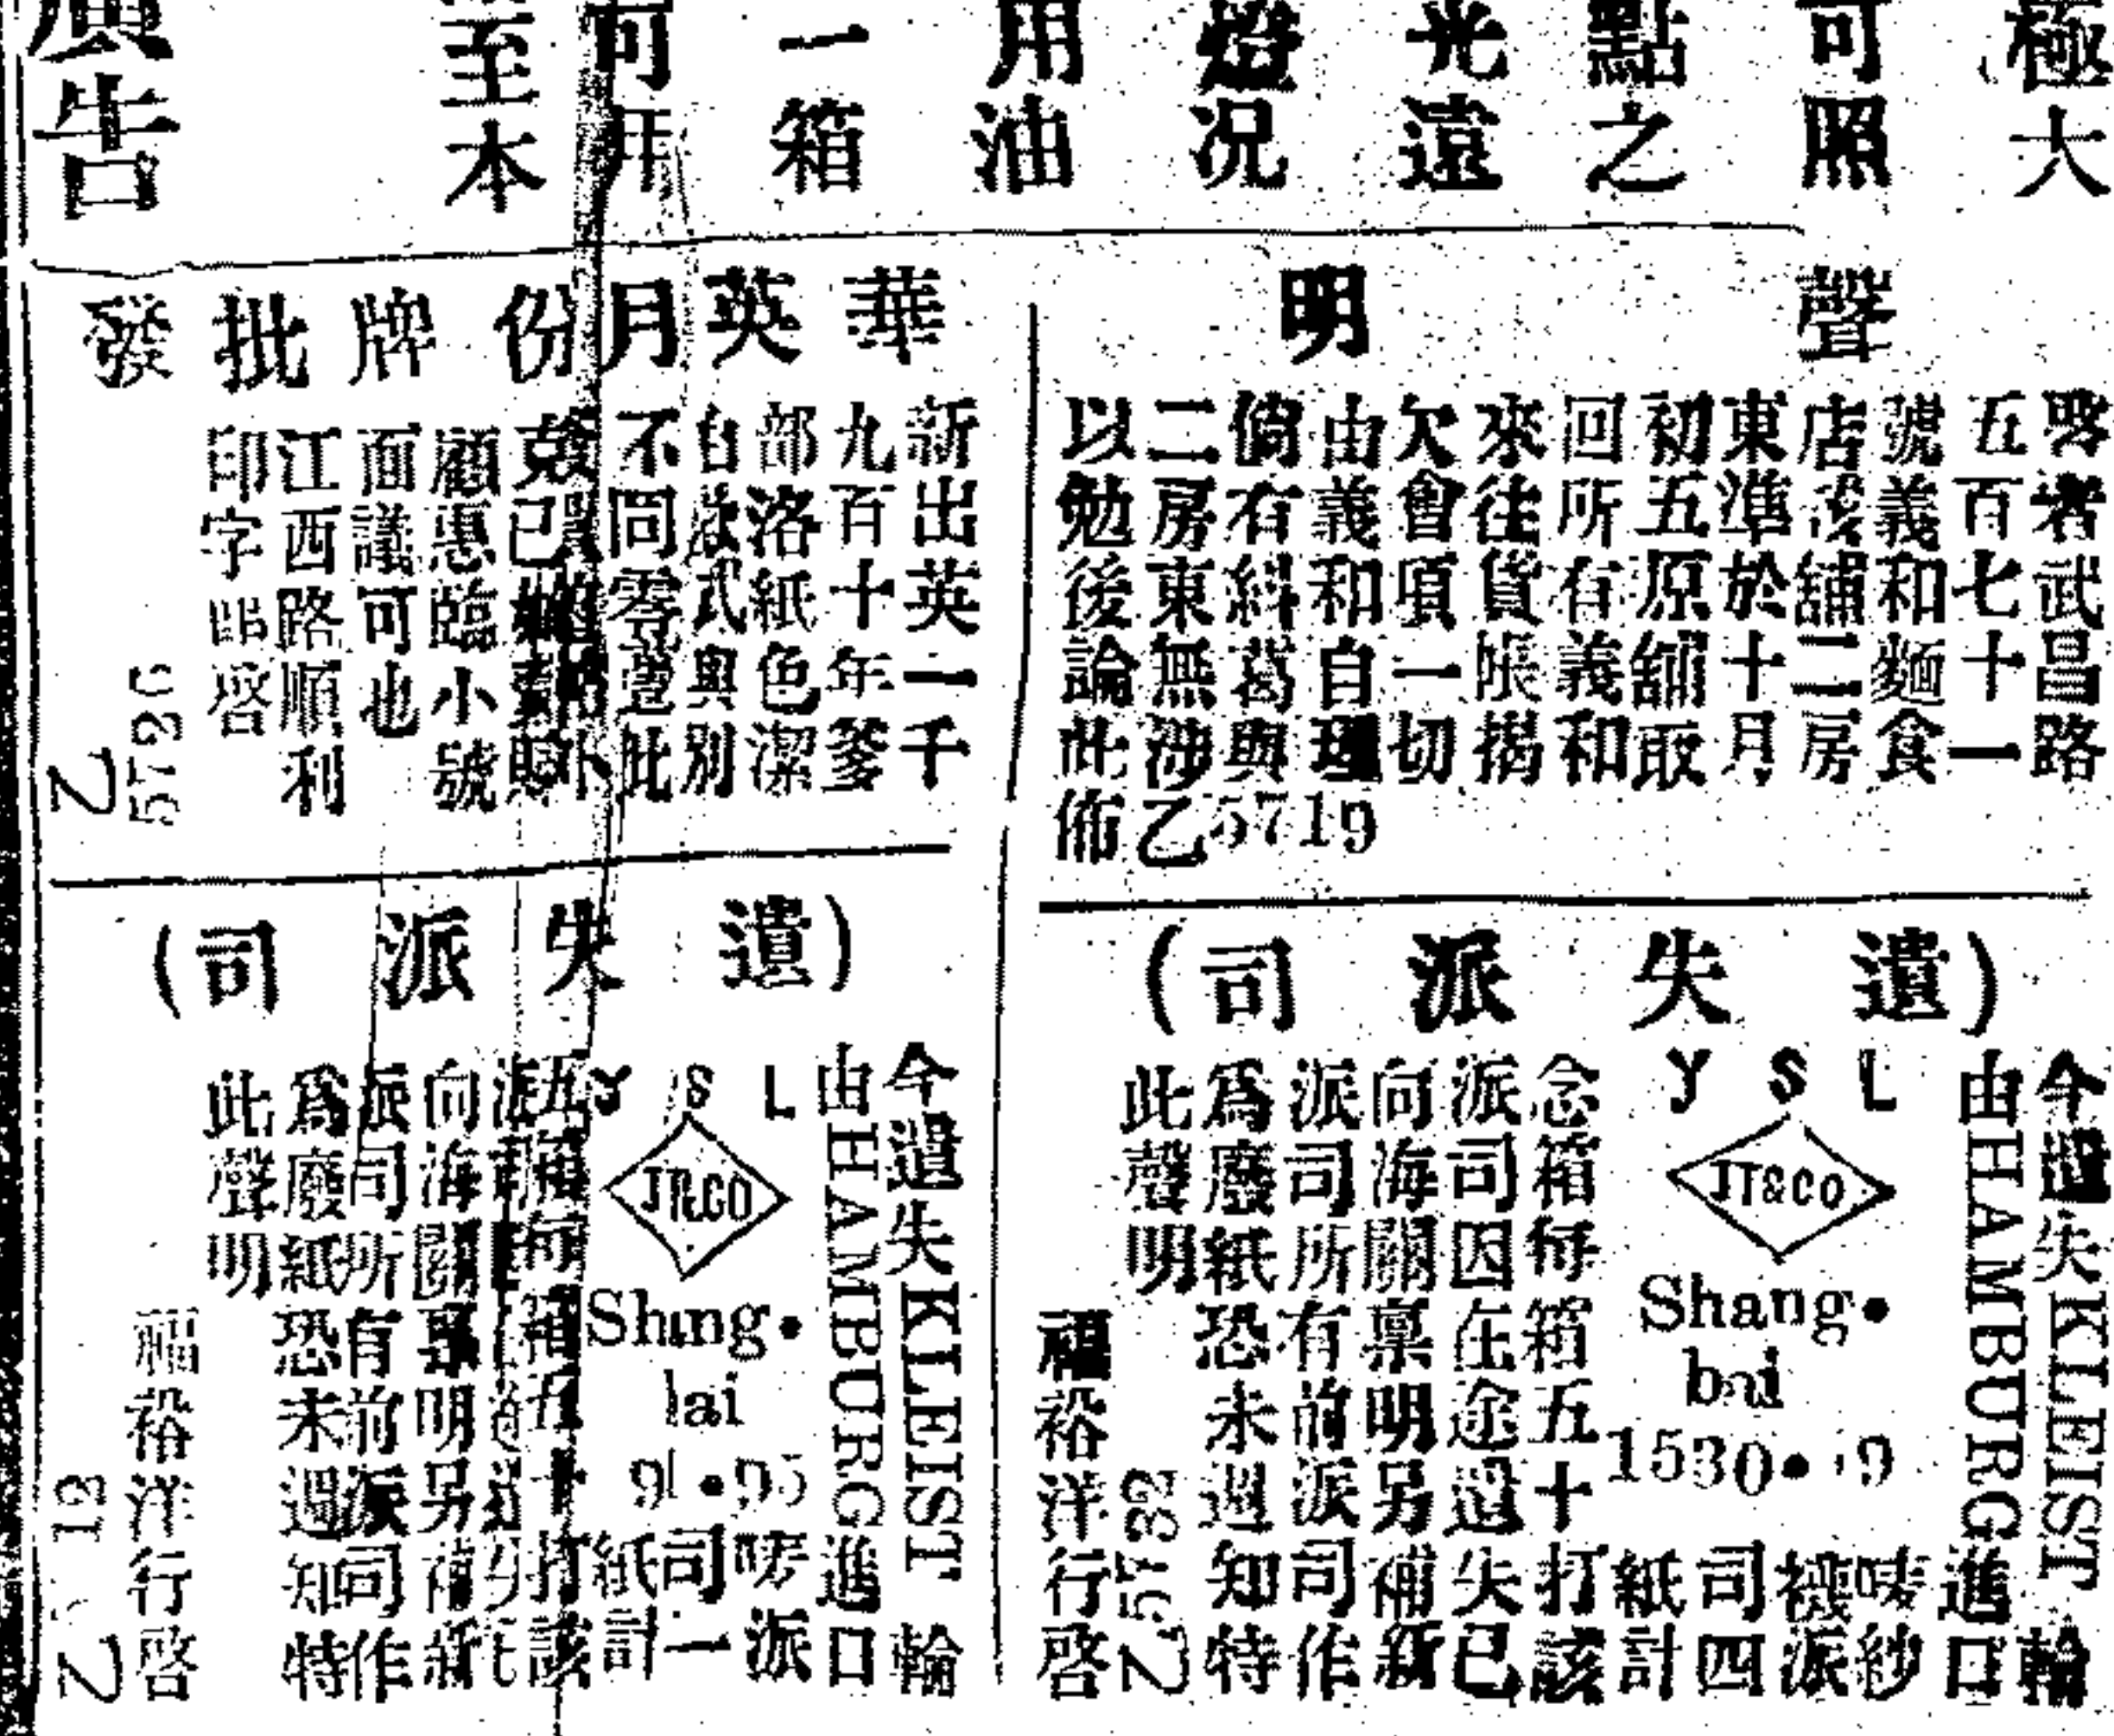 極大
可照
點之
光遠
燈况
用油
一箱
可用
至本
廣告
聲明
啓者武昌路
五百七十一
號義和麵食
店茂舖二房
東準於十月
初五原舖取
回所有義和
來往貨帳揭
欠會項一切
由義和自理
倘有糾葛與
二房東無涉
以勉後論此佈
乙5719
華英月份牌批發
新出英一千
九百十年爹
部洛紙色潔
白款式與別
不同零躉批
顧惠臨小號
面議可也
江西路順利
印字館啓
5726
Z
(遺失派司)
今遺失KLEIST輪
由HAMBURG進口
Y S L
JT&CO
Shang•
hai
1530• 9
唛紗
襪派
司四
紙計
念箱每箱五十打該
派司因在途遺失已
向海關稟明另補新
派司所有前派司作
爲廢紙恐未週知特
此聲明
福裕洋行啓
Z5732
(遺失派司)
今遺失KLEIST輪
由HAMBURG進口
Y S L
Shang•
hai
派
司一
紙計
五箱每箱五十打該
向海關稟明另補新
派司所有前派司作
爲廢紙恐未週知特
此聲明
福裕洋行啓
Z